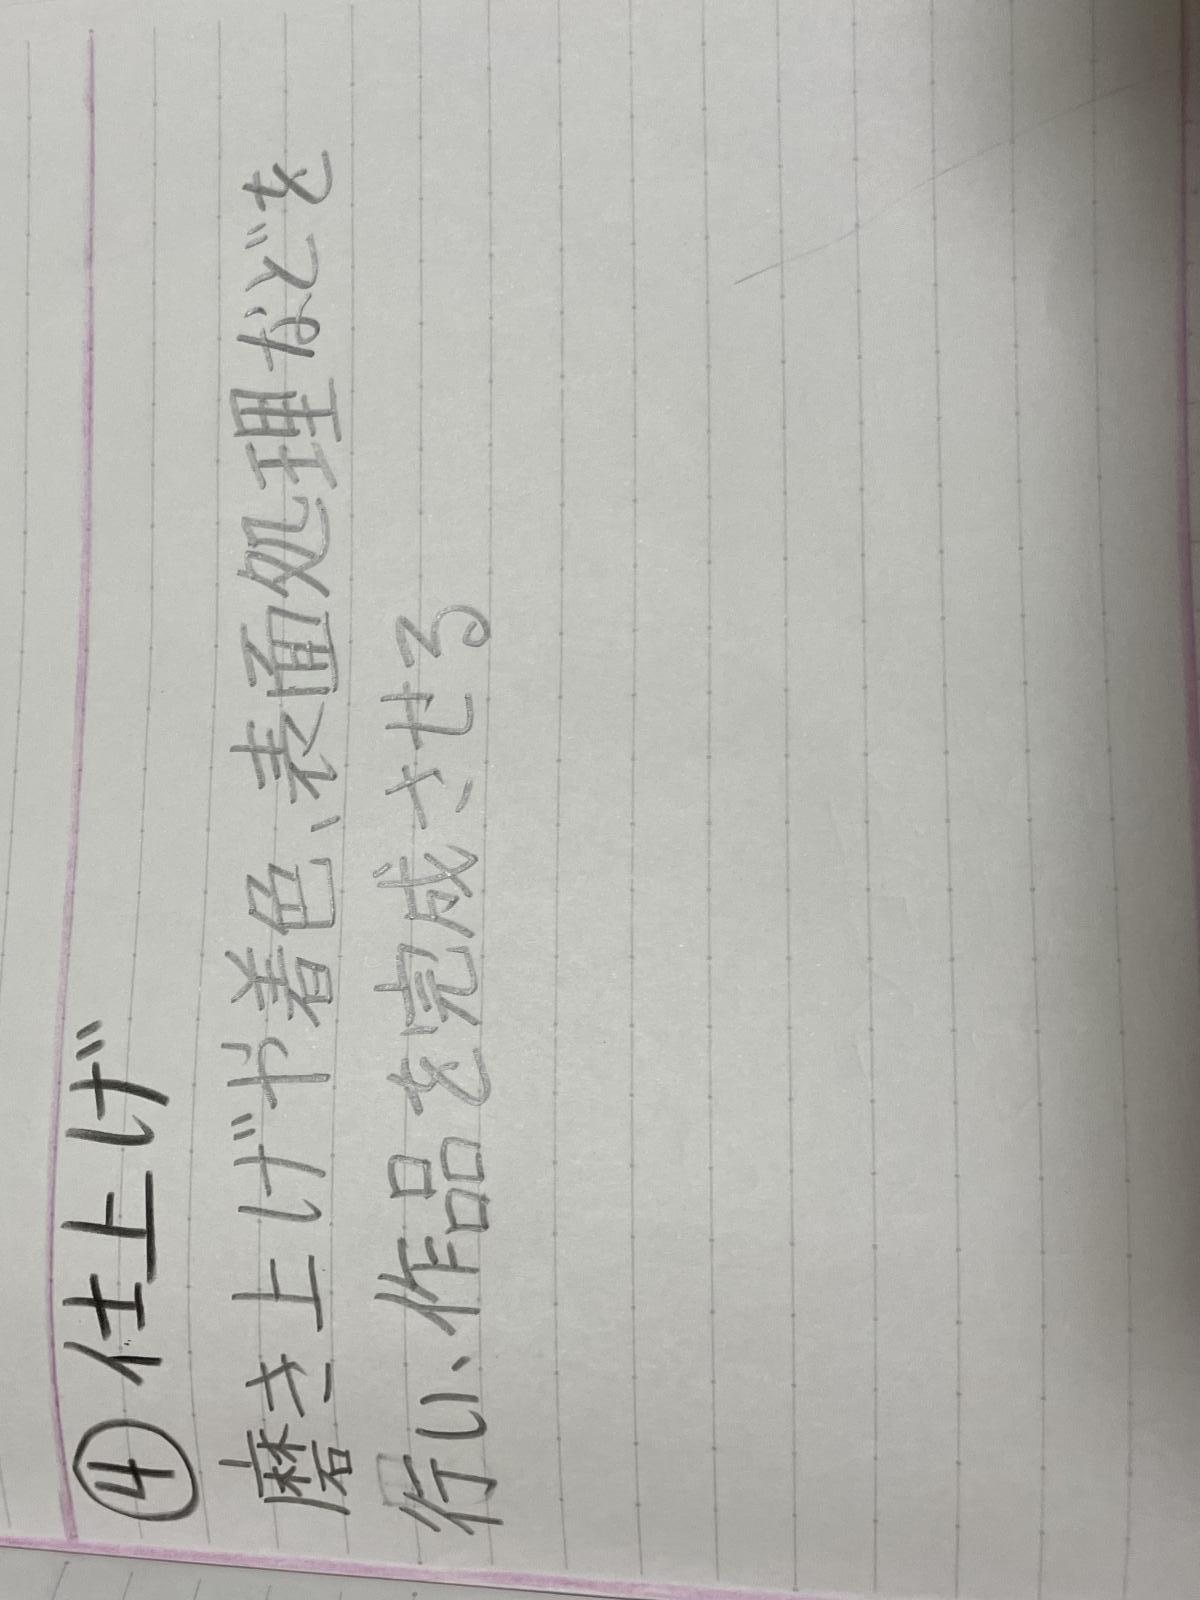 ④仕上げ
磨き上げや着色、表面処理などを
行い、作品を完成させる